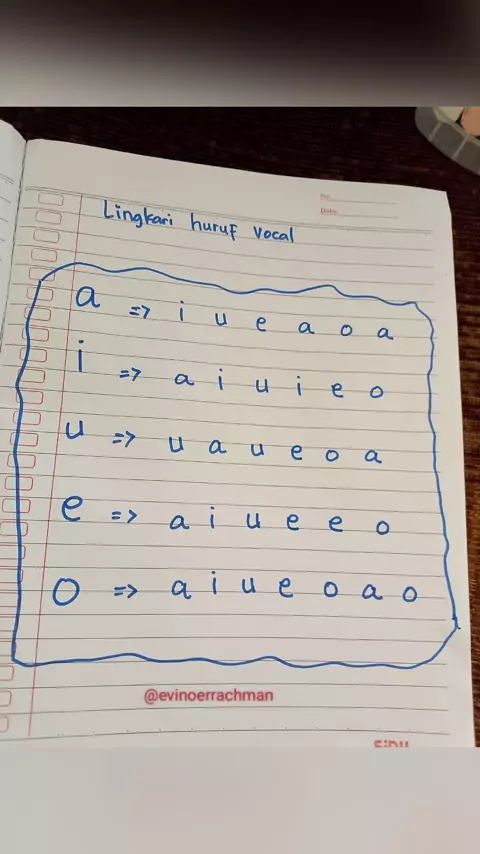 No:
Date:
Lingkari huruf vocal
a => i u e a o a
i => a i u i e o
u => u a u e o a
e => a i u e e o
o => a i u e o a o
@evinoerrachman
SiDU